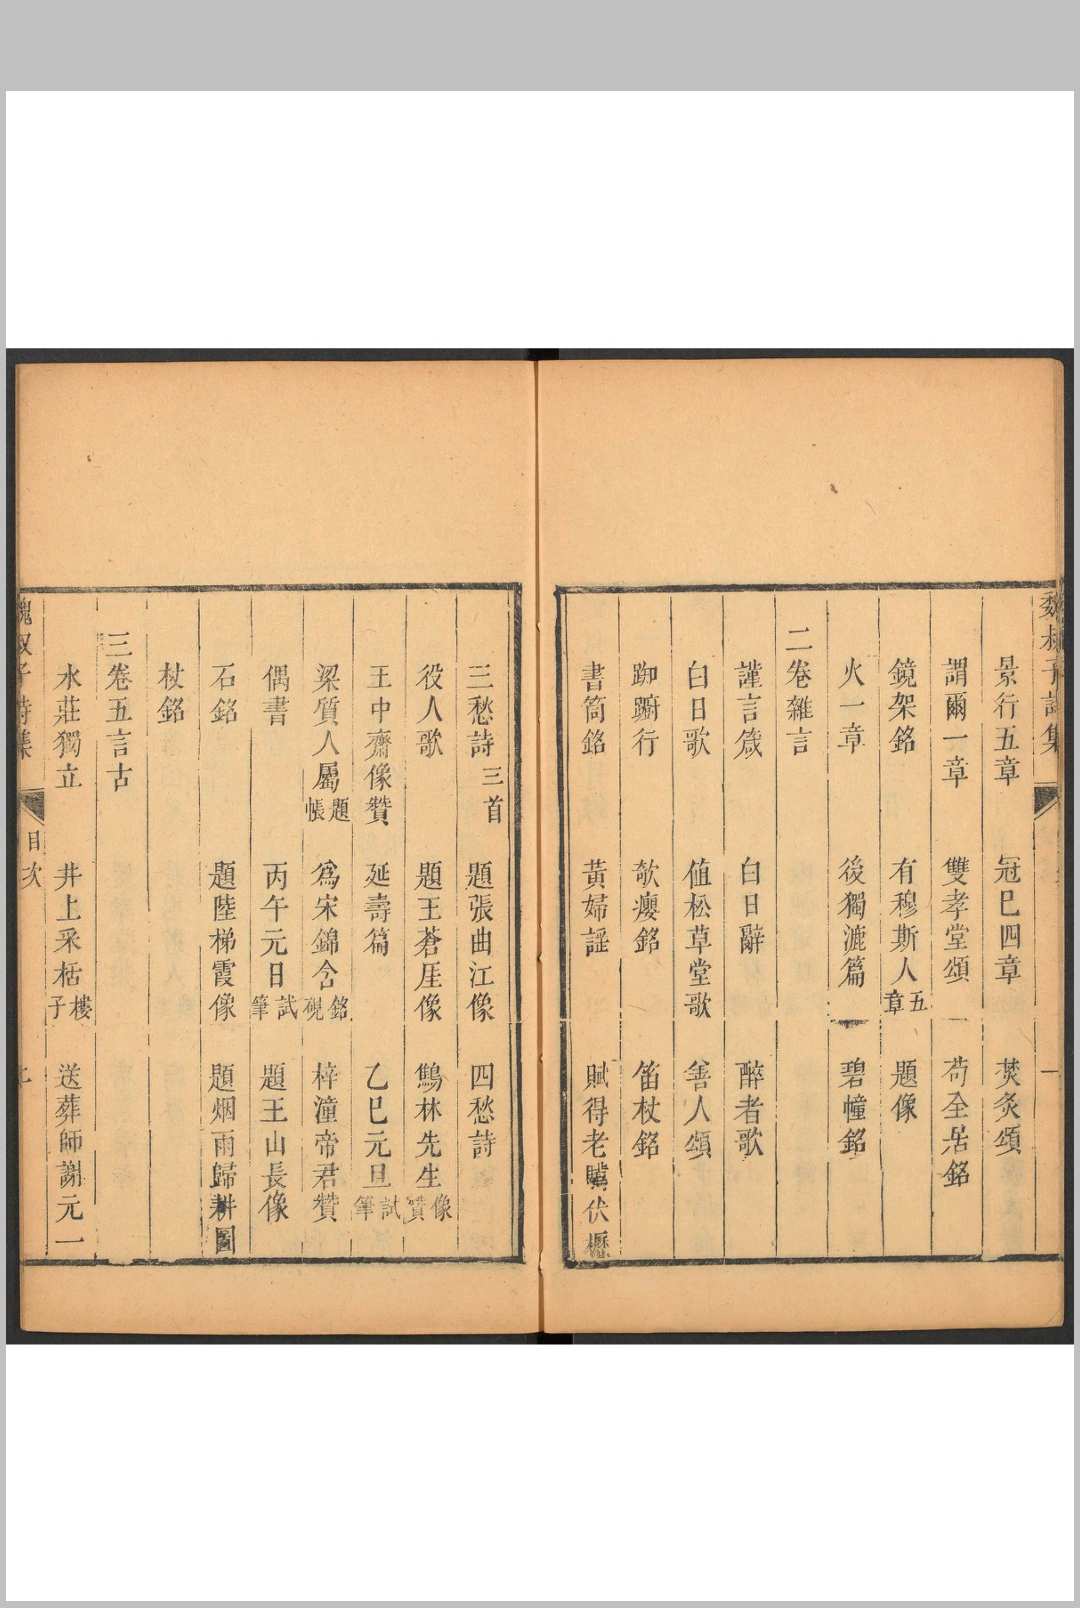 魏叔子詩集
一
景行五章 冠巳四章 焚灸頌
謂爾一章 雙孝堂頌 苟全居銘
鏡架銘 有穆斯人五章 題像
火一章 後獨漉篇 碧幢銘
二卷雜言
謹言箴 白日辭 醉者歌
白日歌 值松草堂歌 善人頌
踟躕行 欹癭銘 笛杖銘
書筒銘 黃婦謡 賦得老驥伏櫪
三愁詩三首 題張曲江像 四愁詩
役人歌 題王蒼厓像 鷦林先生像贊
王中齋像贊 延壽篇 乙巳元旦試筆
梁質人屬題帳 爲宋錦含銘硯 梓潼帝君贊
偶書 丙午元日試筆 題王山長像
石銘 題陸梯霞像 題烟雨歸耕圖
杖銘
三卷五言古
水莊獨立 井上采栝樓子 送葬師謝元一
魏叔子詩集
目次